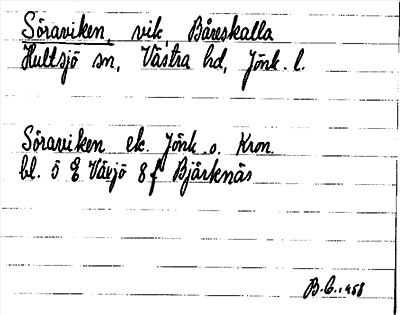 Söraviken, vik, Båreskalla
Hultsjö sn, Västra hd, Jönk. l.
Söraviken ek. Jönk. o. Kron.
bl. 5 Växjö 8 f Bjärknäs
B.C. 1958